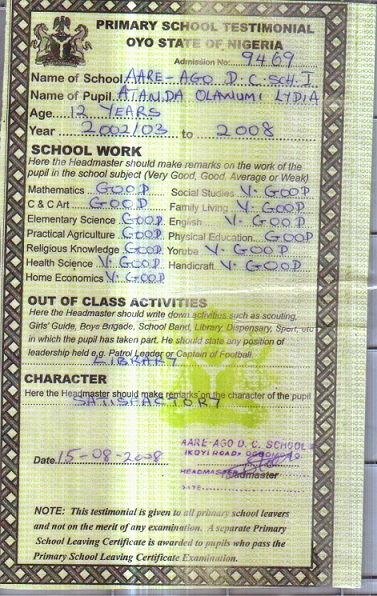 PRIMARY SCHOOL TESTIMONIAL
OYO STATE OF NIGERIA
Admission No: 9469
Name of School AARE-AGO D.C. SCH. I
Name of Pupil ATANDA OLANUMI LYDIA
Age.... 12 YEARS
Year 2002/03 to 2008
SCHOOL WORK
Here the Headmaster should make remarks on the work of the
pupil in the school subject (Very Good, Good, Average or Weak)
Mathematics GOOD Social Studies V. GOOD
C & C Art GOOD Family Living V. GOOD
Elementary Science GOOD English V. GOOD
Practical Agriculture GOOD Physical Education GOOD
Religious Knowledge GOOD Yoruba V. GOOD
Health Science V. GOOD Handicraft V. GOOD
Home Economics V. GOOD
OUT OF CLASS ACTIVITIES
Here the Headmaster should write down activities such as scouting,
Girls' Guide, Boys Brigade, School Band, Library, Dispensary, Sport, etc
in which the pupil has taken part. He should state any position of
leadership held e.g. Patrol Leader or Captain of Football.
LIBRARY
CHARACTER
Here the Headmaster should make remarks on the character of the pupil
SATISFACTORY
AARE-AGO D.C. SCHOOL
IKOYI ROAD
Date 15-08-2008
HEADMASTER
Headmaster
DATE
NOTE: This testimonial is given to all primary school leavers
and not on the merit of any examination. A separate Primary
School Leaving Certificate is awarded to pupils who pass the
Primary School Leaving Certificate Examination.